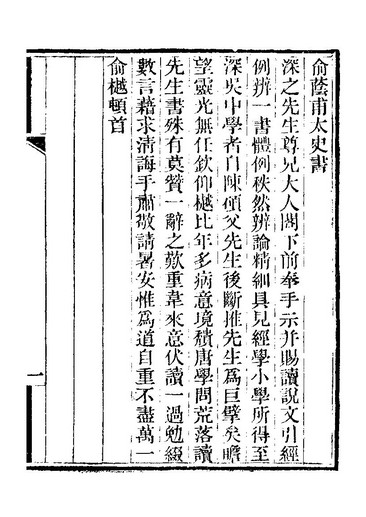 俞蔭甫太史書
深之先生尊兄大人閣下前奉手示并賜讀說文引經
例辨一書體例秩然辨論精細具見經學小學所得至
深吳中學者自陳碩父先生後斷推先生爲巨擘矣瞻
望靈光無任欽仰樾比年多病意境穨唐學問荒落讀
先生書殊有莫贊一辭之歎重韋來意伏讀一過勉綴
數言藉求清誨手肅敬請暑安惟爲道自重不盡萬一
俞樾頓首
一